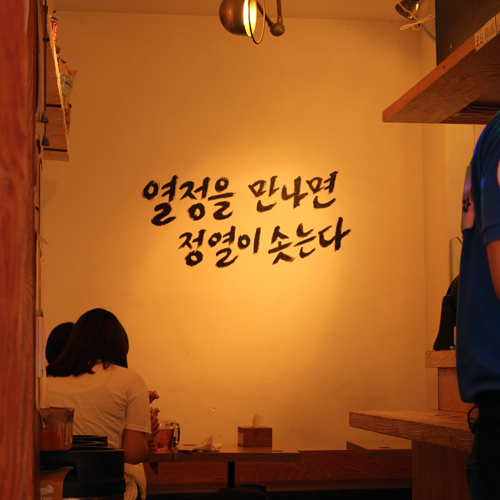 열정을 만나면
정열이 솟는다